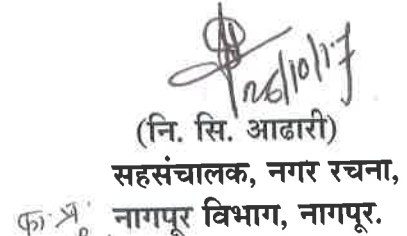 26/10/17
(नि. सि. आढारी)
सहसंचालक, नगर रचना,
का. प्र. नागपूर विभाग, नागपूर.